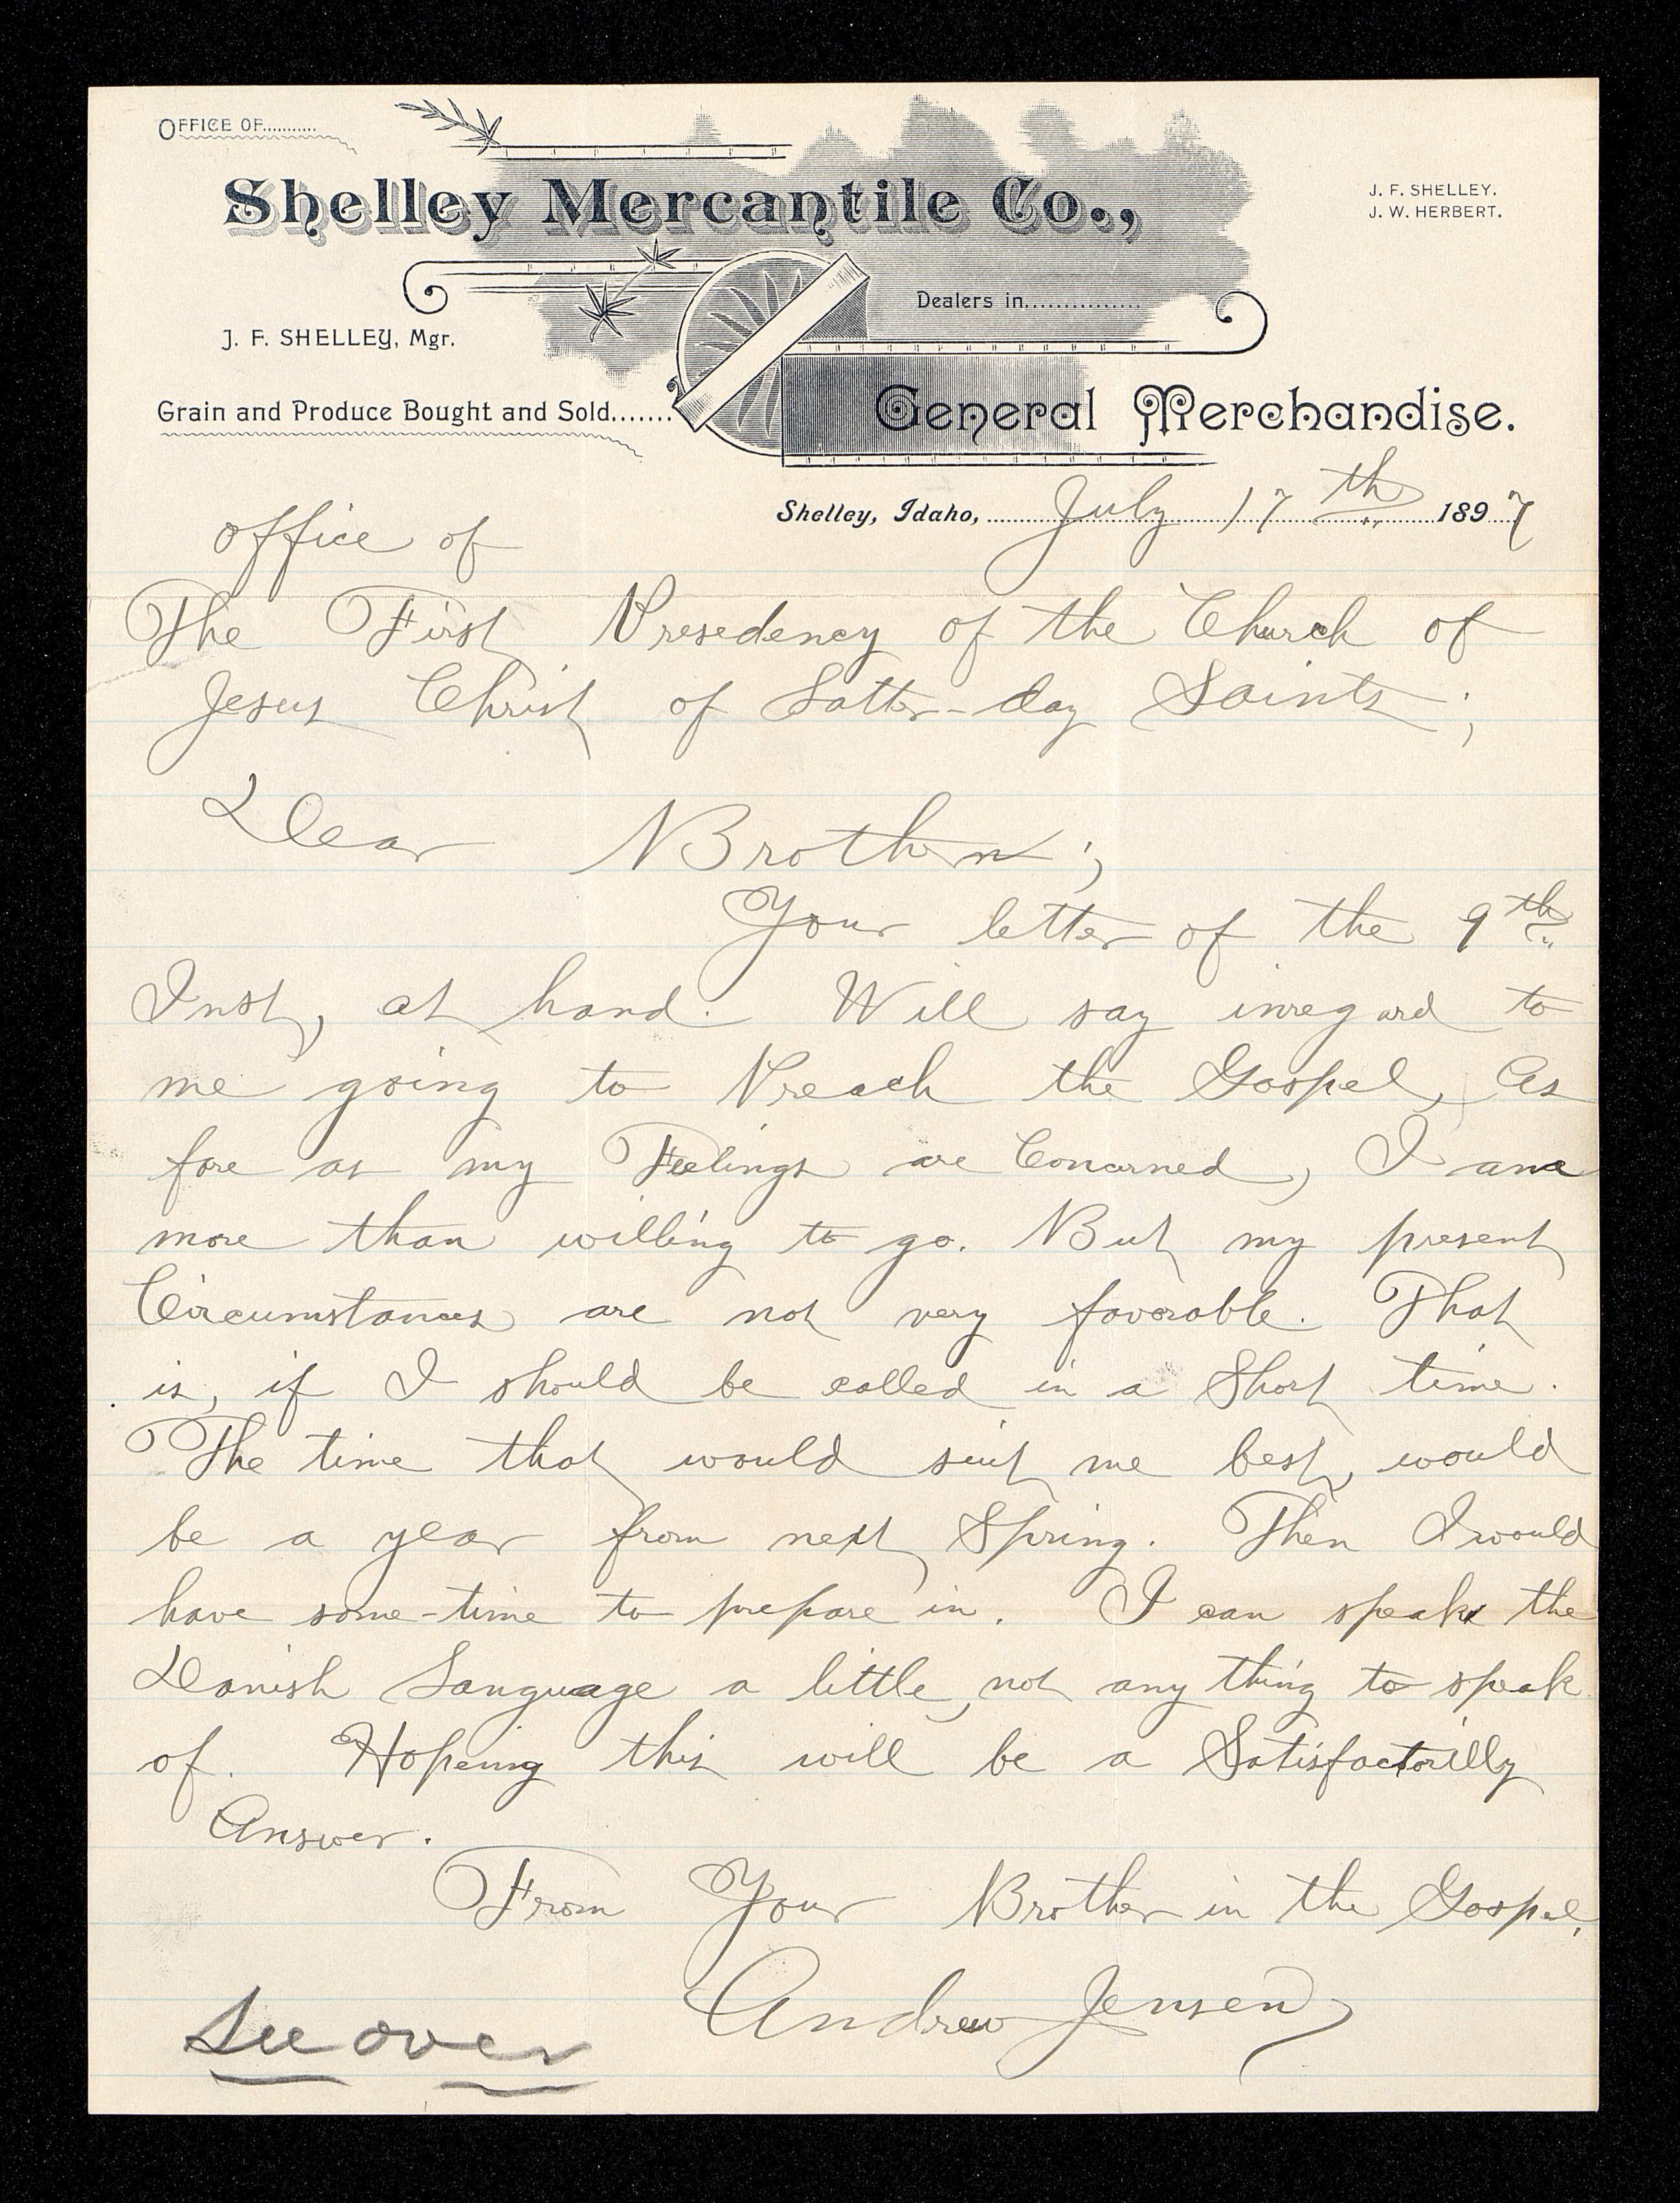 OFFICE OF...........
Shelley Mercantile Co.,
J. F. SHELLEY.
J. W. HERBERT.
Dealers in................
J. F. SHELLEY, Mgr.
Grain and Produce Bought and Sold.......
General Merchandise.
Shelley, Idaho, July 17th 1897
office of
The First Presedency of the Church of
Jesus Christ of Latter-day Saints;
Dear Brothern;
Your letter of the 9th
Inst, at hand. Will say inregard to
me going to Preach the Gospel, As
fore as my Feelings are Concerned, I ame
more than willing to go. But my present
Circumstances are not very favorable. That
is, if I should be called in a Short time.
The time that would suit me best, would
be a year from next Spring. Then I would
have some-time to prepare in. I can speak the
Danish Language a little, not any thing to speak
of. Hopeing this will be a Satisfactorilly
Answer.
From Your Brother in the Gospel,
Andrew Jensen
See over